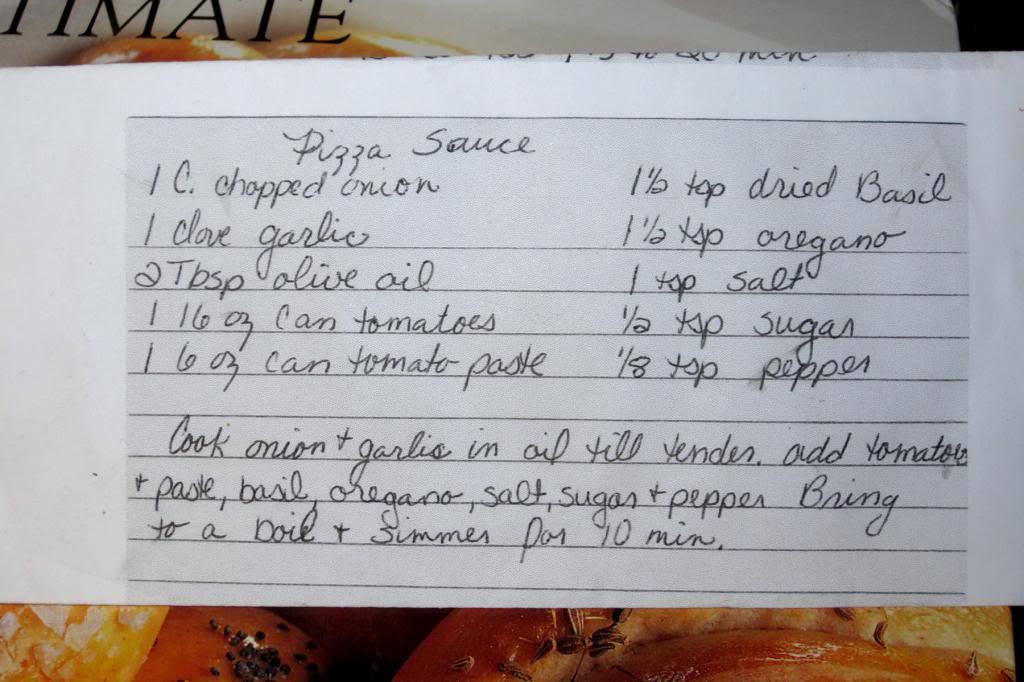 TIMATE
20 min
Pizza Sauce
1 C. chopped onion
1 clove garlic
2 Tbsp olive oil
1 16 oz Can tomatoes
1 6 oz can tomato paste
1½ tsp dried Basil
1½ tsp oregano
1 tsp salt
½ tsp sugar
⅛ tsp pepper
Cook onion + garlic in oil till tender. add tomatoes
+ paste, basil, oregano, salt, sugar + pepper Bring
to a boil + simmer for 10 min.